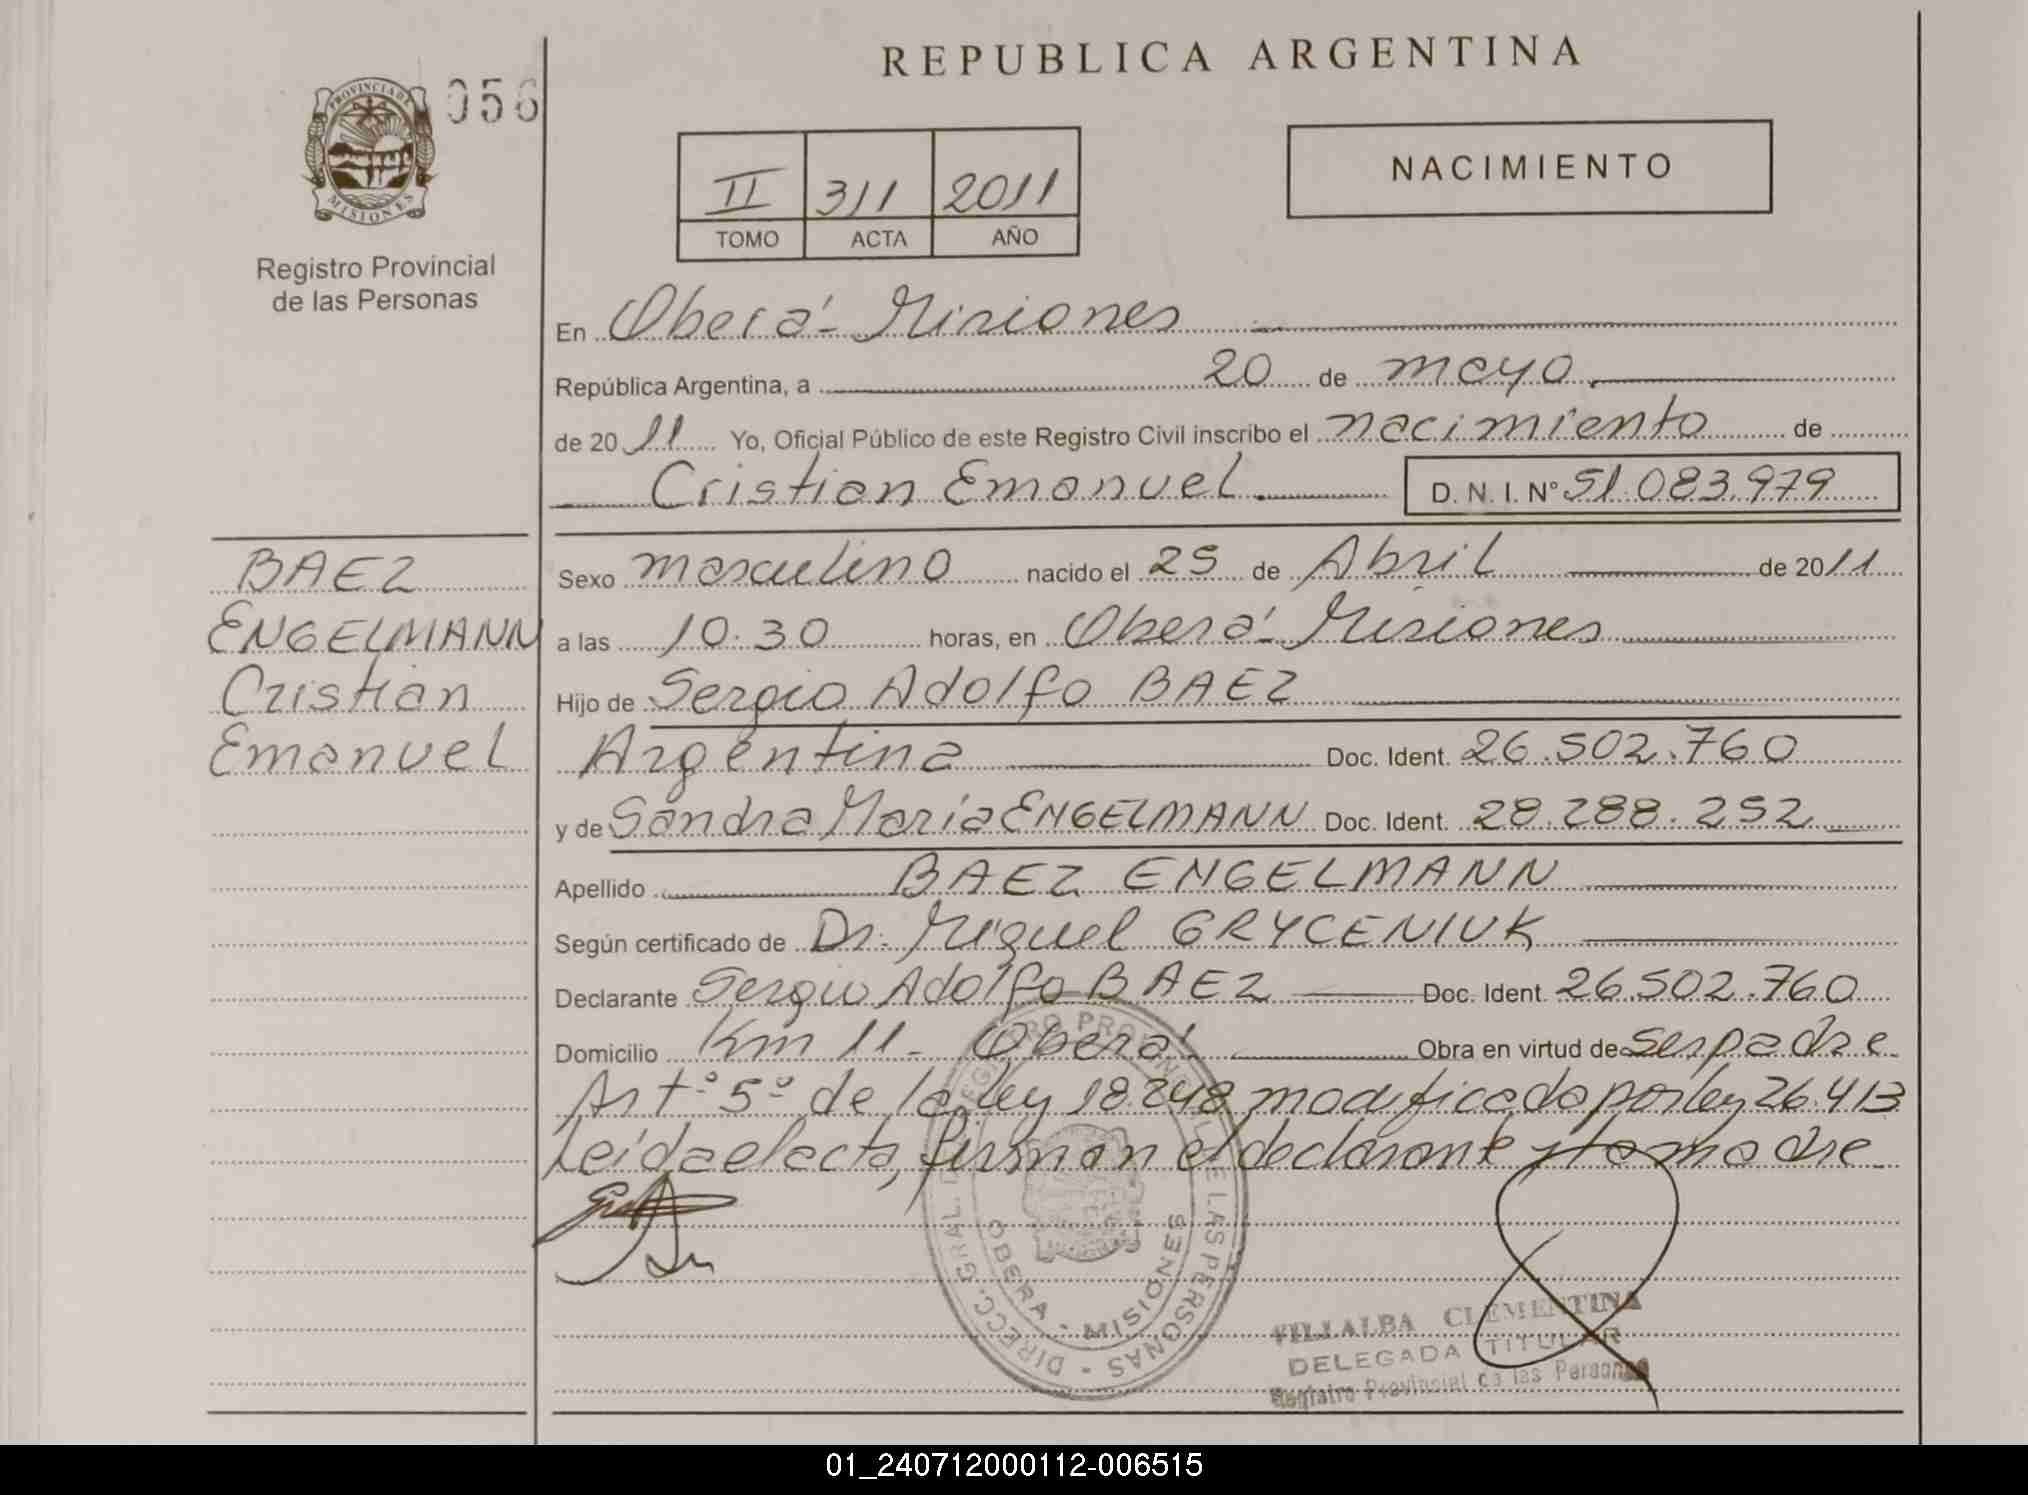 REPUBLICA ARGENTINA
PROVINCIA DE
MISIONES
056
Registro Provincial
de las Personas
II 311 2011
TOMO ACTA AÑO
NACIMIENTO
En Oberá - Misiones
República Argentina, a 20 de mayo
de 2011 Yo, Oficial Público de este Registro Civil inscribo el nacimiento de
Cristian Emanuel D. N. I. N° 51.083.979
BAEZ
ENGELMANN
Cristian
Emanuel
Sexo masculino nacido el 25 de Abril de 2011
a las 10.30 horas, en Oberá - Misiones
Hijo de Sergio Adolfo BAEZ
Argentina Doc. Ident. 26.502.760
y de Sandra María ENGELMANN Doc. Ident. 28.288.252
Apellido BAEZ ENGELMANN
Según certificado de Dr. Miguel GRYCENIUK
Declarante Sergio Adolfo BAEZ Doc. Ident. 26.502.760
Domicilio Km 11 - Oberá Obra en virtud de ser padre
Art° 5° de la ley 18.248 modificado por ley 26.413
Leída el acta, firman el declarante y la madre
DIRECC. GRAL. DEL REGISTRO PROVINCIAL DE LAS PERSONAS
OBERA - MISIONES
VILLALBA CLEMENTINA
DELEGADA TITULAR
Registro Provincial de las Personas
01_240712000112-006515